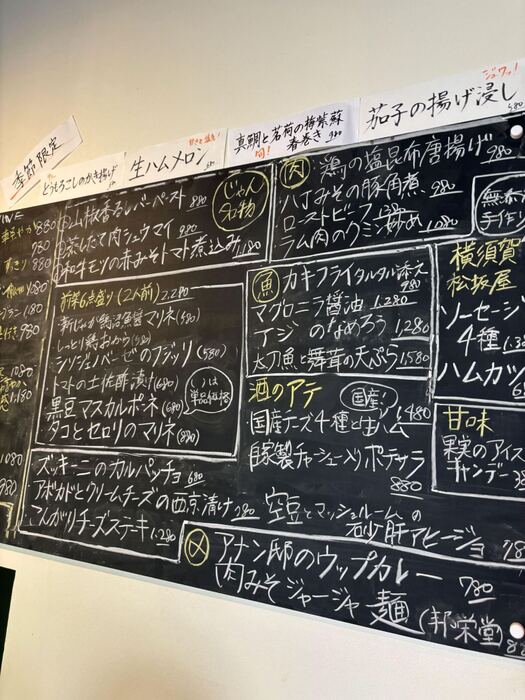 季節限定
とうもろこしのかき揚げ
生ハムメロン
真鯛と茗荷の梅紫蘇
春巻き
旬!
茄子の揚げ浸し
ジュワッ!
じゃん
名物
山椒香るレバーペースト 880
蒸したて肉シュウマイ 980
和牛モツの赤みそトマト煮込み 1,180
前菜6点盛り(2人前) 2,280
マリネ (580)
しっとり鶏おから (580)
シシリジェノベーゼのフジッリ (580)
トマトの土佐酢漬け (680)
黒豆マスカルポーネ (680)
タコとセロリのマリネ (880)
( )は
単品価格
ズッキーニのカルパッチョ 680
アボカドとクリームチーズの西京漬け 780
こんがりチーズステーキ 1,280
肉
鶏の塩昆布唐揚げ 980
八丁みその豚角煮 980
ローストビーフ
ラム肉のクミン炒め 1,080
魚
カキフライタルタル添え
980
マグロニラ醤油 1,280
アジのなめろう 1,280
太刀魚と舞茸の天ぷら 1,580
酒のアテ
国産!
国産チーズ4種と生ハム 1,480
自家製チャーシュー入りポテサラ
880
空豆とマッシュルームの
砂肝アヒージョ 780
〆
アナン邸のウップカレー 780
肉みそジャージャ麺 (邦栄堂)
無添
手作
横須賀
松坂屋
ソーセージ
4種
ハムカツ
甘味
果実のアイス
キャンデー